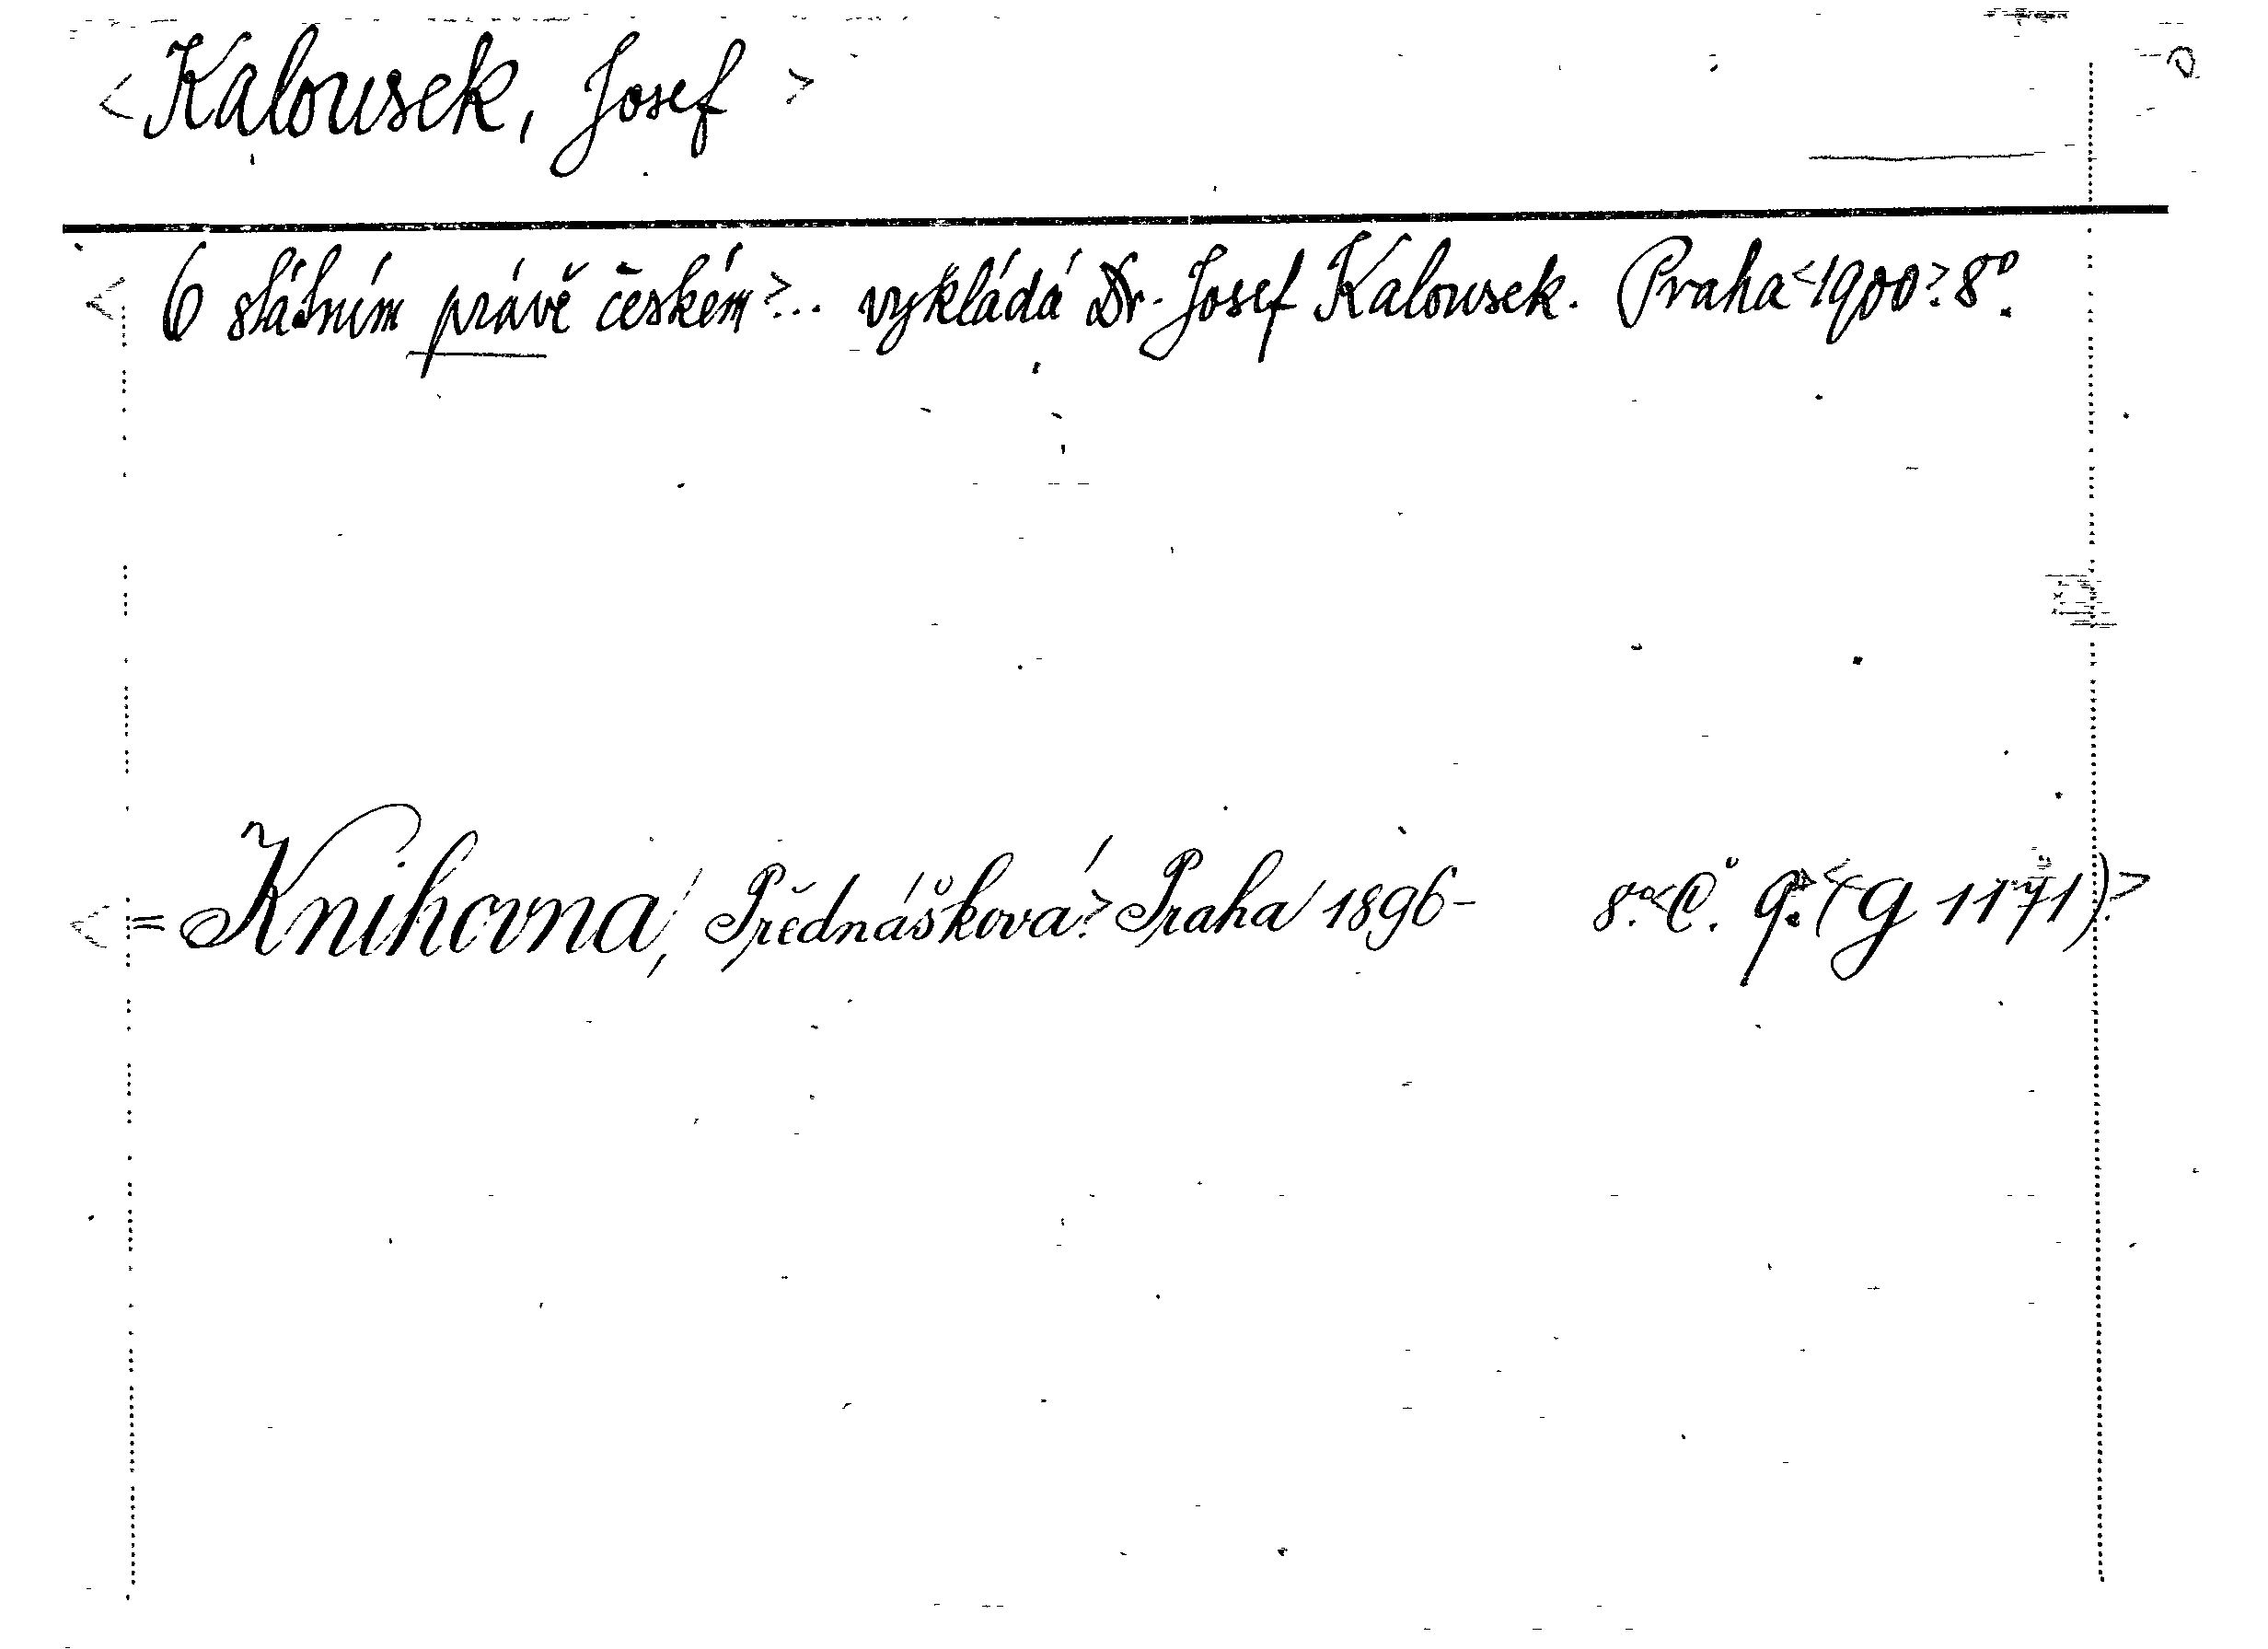 <Kalousek, Josef>
<O státním právě českém>... vykládá Dr. Josef Kalousek. Praha <1900>. 8º.
<=Knihovna, Přednášková>. Praha 1896- 8º. <Č. 9.> <(G 1171)>